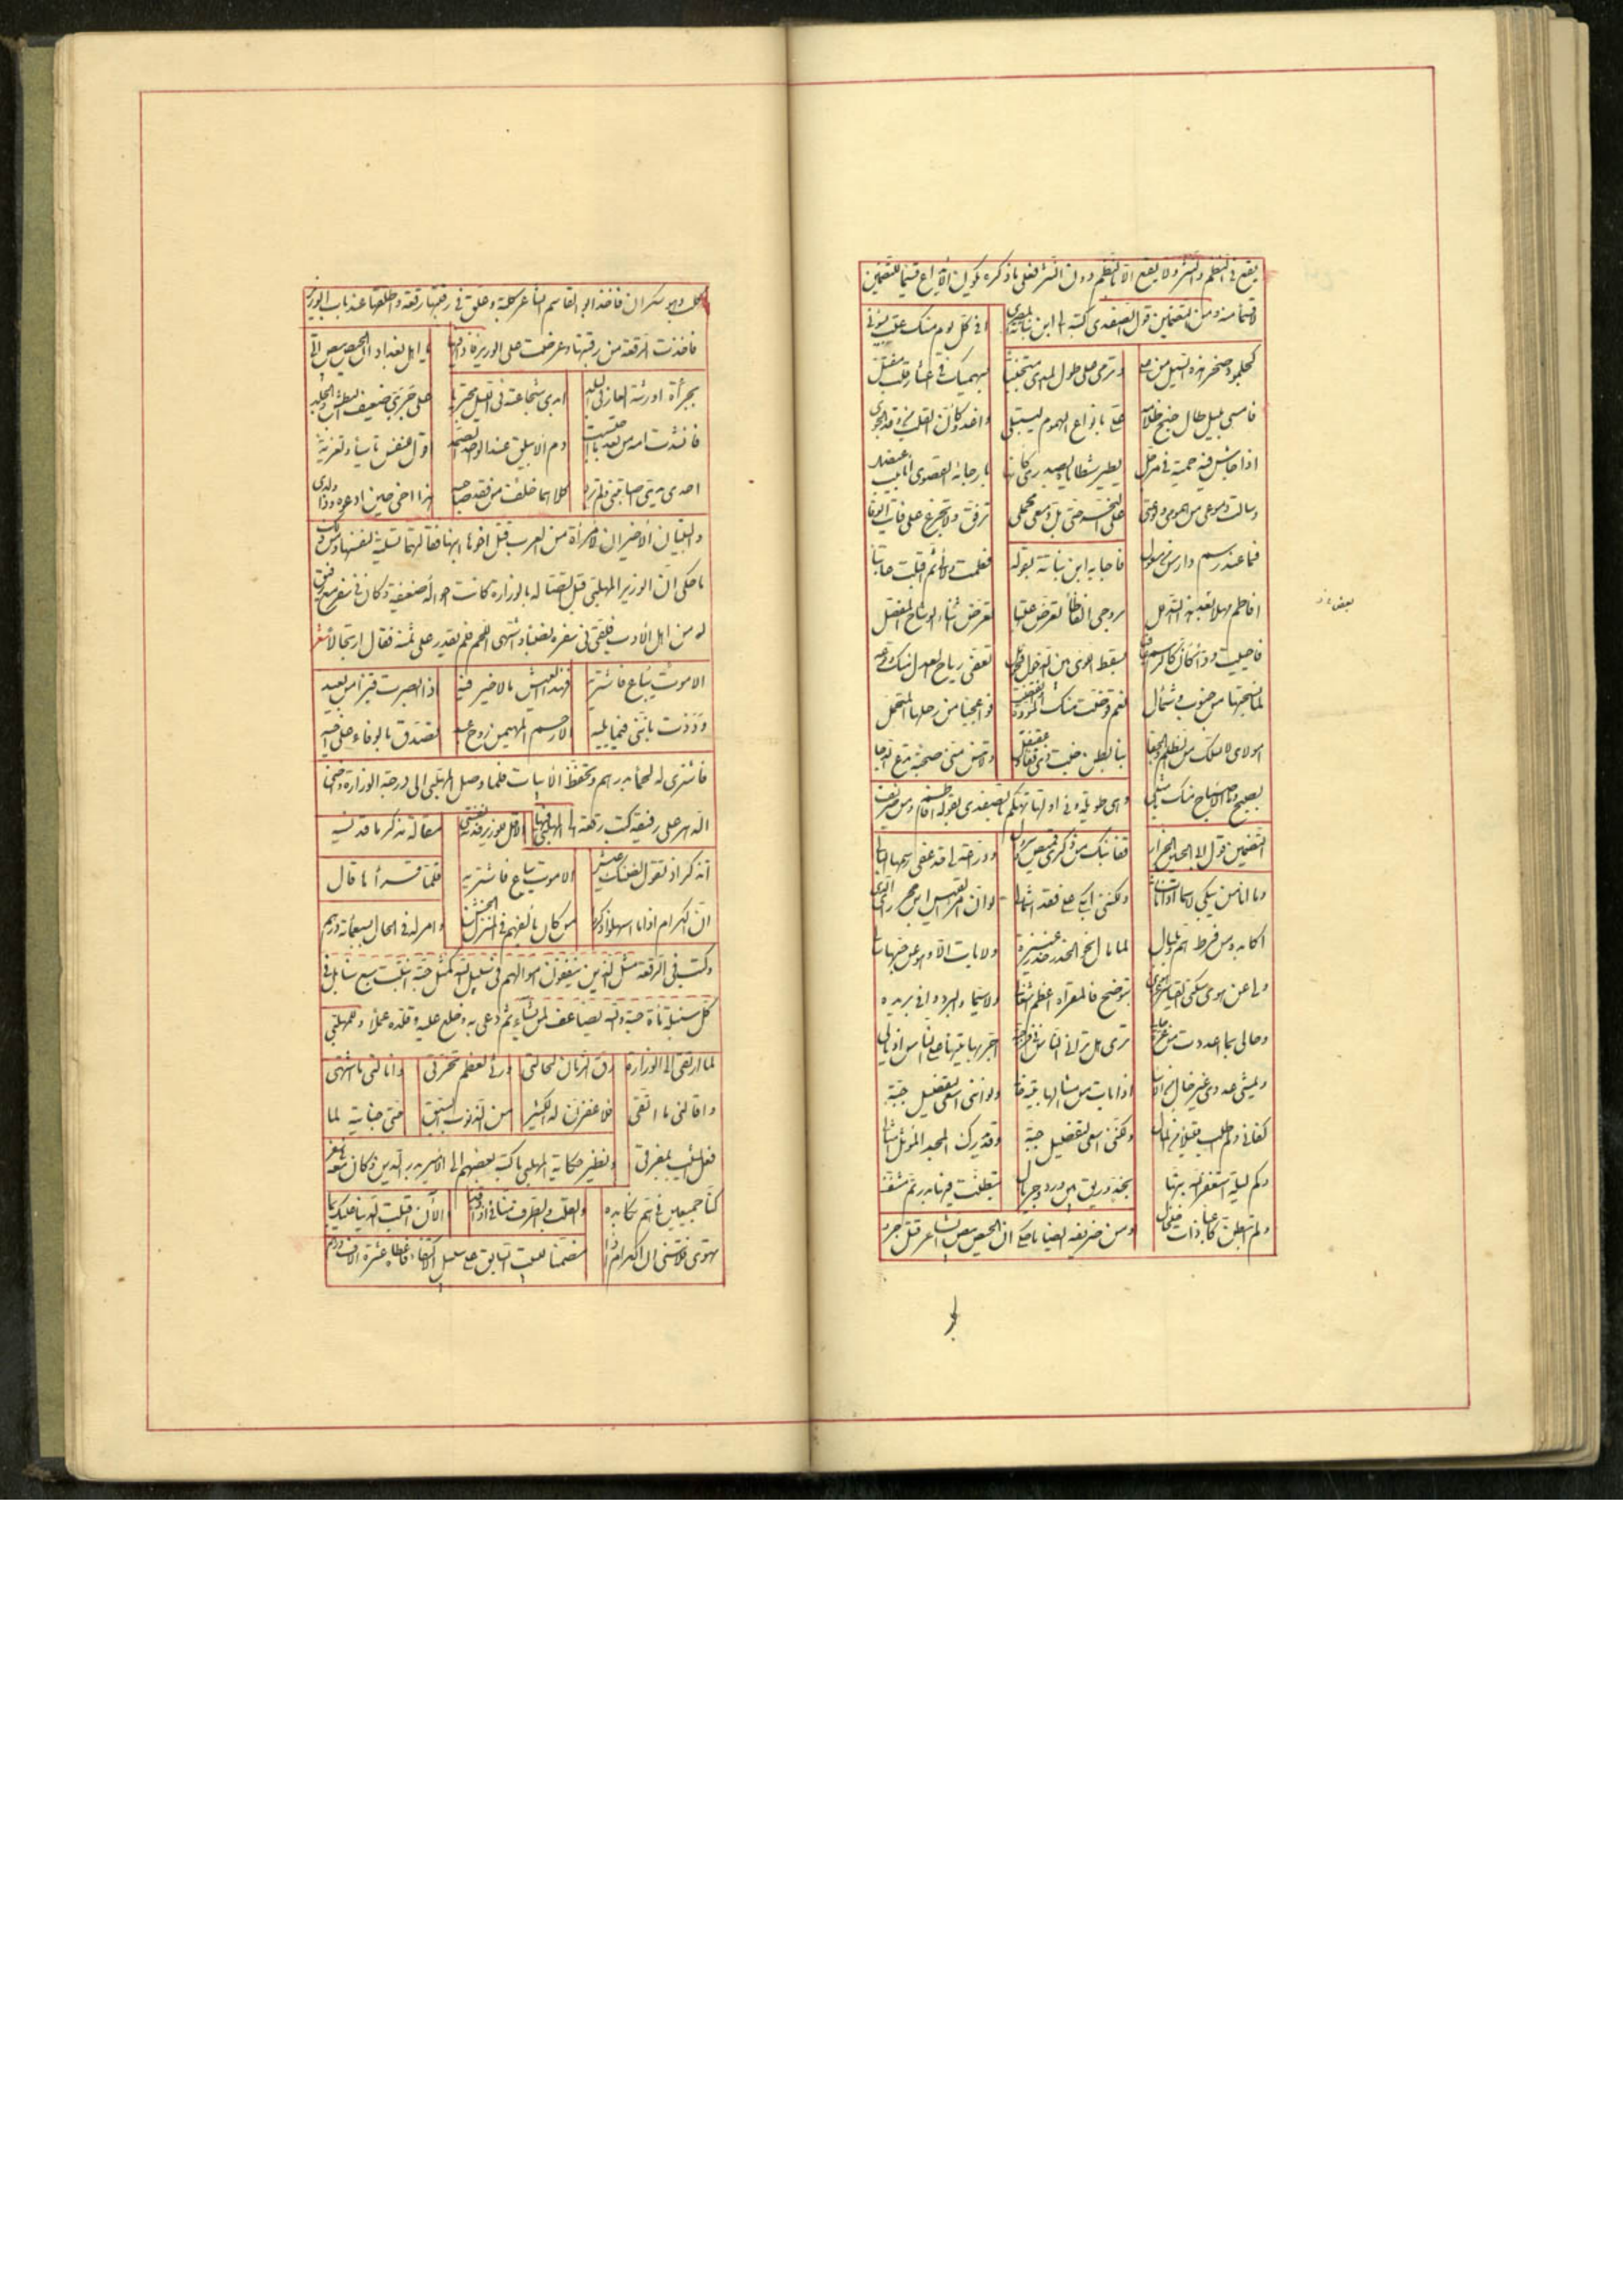 يقع فى النظم والنثر ولا يقع الا فى النظم دون النثر فعلى ما ذكره يكون الابداع قسيما للتضمين
لا قسما منه ومن التضمين قول الصفدى كتبه الى ابن نباتة المصرى افى كل يوم منك عتب يسوئنى
كجلمود صخر حطه السيل من عل وترمى على طول المدى متجنيا بسهميك فى اعشار قلب مقتل
فامسى بليل طال جنح ظلامه على بانواع الهموم ليبتلى واغدو كأن القلب من وقدة الجوى
اذا جاش فيه حميه غلى مرجل يطير شظاياه بصدرى كأنها بارجائه القصوى انابيش عنصل
وسالت دموعى من همومى ولوعتى على النحر حتى بل دمعى محملى ترفق ولا تجزع على فائت الوفا
فما عند رسم دارس من معول فاجابه ابن نباتة بقوله فطمت ولائى ثم اقبلت عاتبا
افاطم مهلا بعض هذا التدلل بروحى الفاظ تعرض عتبها تعرض اثناء الوشاح المفصل
فاحيين ودا كان كالرسم عافيا بسقط اللوى بين الدخول فحومل تعفى رياح العذر منك رقومه
لما نسجتها من جنوب وشمأل نعم قوضت منك المودة وانقضت فوا عجبا من رحلها المتحمل
امولاى لا تسلك من الظلم والجفا بنا بطن خبت ذى قفاف عقنقل ولا تنس منى صحبة تصدع الدجا
بصبح وما الاصباح منك بامثل وهى طويلة وفى اولها تهكم بالصفدى بقوله افاطم ومن ظريف
التضمين قول ابى الحسين الجزار قفا نبك من ذكرى قميص وسروال ودراعة لى قد عفى رسمها البالى
وما انا من يبكى لاسماء ان نأت ولكننى ابكى على فقد اسمالى لو ان امرء القيس بن حجر رأى الذى
اكابده من فرط هم وبلبال لما مال نحو الخدر خدر عنيزة ولا بات الا وهو عن حبها سال
ولى من هوى سكنى القياسر عن هوى بتوضح فالمقراة اعظم اشغال ولا سيما والبرد وافى بريده
وحالى بما اعددت من عزه حالى ترى هل ترانى الناس فى فرجية اجر بها تيها على الناس اذيالى
ويمشى عدوى غير خال من الاسا اذا بات من امثالها بيته خالى ولو اننى اسعى لتفضيل جبة
كفانى ولم اطلب قليل من المال ولكننى اسعى لتفضيل جبة وقد يدرك المجد المؤثل امثالى
وكم ليلة استغفر الله بتها بخد وريق بين ورد وجريال تبطنت فيها بدر تم مشنفا
ولم اتبطن كاعبا ذات خلخال ومن ظريفه ايضا ما حكى ان الحيص بيص الشاعر قتل جرو
بعض نخ
كلب وهو سكران فاخذ ابو القاسم الشاعر كلبة وعلق فى رقبتها رقعة واطلقها عند باب الوزير
فاخذت الرقعة من رقبتها وعرضت على الوزير فاذا فيها يا اهل بغداد ان الحيص بيص اتى
بجرأة اورثته العار فى البلد ابدى شجاعته فى الليل مجتريا على جرى ضعيف البطش والجلد
فانشدت امه من بعد ما احتسبت دم الابيلق عند الواحد الصمد اقول للنفس تأساء وتعزية
احدى يدى اصابتنى ولم ترد كلاهما خلف من فقد صاحبه هذا اخى حين ادعوه وذا ولدى
والبيتان الاخيران لامرأة من العرب قتل اخوها ابنها فقالتهما تسلية لنفسها ومن ذلك
ما حكى ان الوزير المهلبى قبل اتصاله بالوزارة كانت احواله ضعيفة وكان فى سفر مع رفيق
له من اهل الادب فلقى فى سفره نصبا واشتهى اللحم فلم يقدر على ثمنه فقال ارتجالا شعر
الا موت يباع فاشتريه فهذا العيش ما لا خير فيه اذا ابصرت قبرا من بعيد
وددت باننى فيما يليه الا رحم المهيمن روح عبد تصدق بالوفاة على اخيه
فاشترى له لحما بدرهم وتحفظ الابيات فلما وصل المهلبى الى درجة الوزارة واخنى
الدهر على رفيقه كتب رقعة الى المهلبى فيها الا قل للوزير فدته نفسى مقالة مذكر ما قد نسيه
اتذكر اذ تقول لضنك عيش الا موت يباع فاشتريه فلما قرأها قال
ان الكرام اذا ما اسهلوا ذكروا من كان يألفهم فى المنزل الخشن وامر له فى الحال بسبعمأة درهم
وكتب فى الرقعة مثل الذين ينفقون اموالهم فى سبيل الله كمثل حبة انبتت سبع سنابل فى
كل سنبلة مأة حبة والله يضاعف لمن يشاء ثم دعى به وخلع عليه وقلده عملا وللمهلبى
لما ارتقى الى الوزارة رق الزمان لحالتى ورثى لعظم تحرقى وانالنى ما اشتهى
واقالنى ما اتقى فلاغفرن له الكثير من الذنوب السبق حتى جناية لما
فعل المشيب بمفرقى ونظير حكاية المهلبى ما كتبه بعضهم الى الامير بدر الدين وكان شعر
كنا جميعين فى هم نكابده والقلب والطرف منا فى اذى وقذى والآن اقبلت الدنيا عليك بما
تهوى فلا تنسنى ان الكرام اذا مضمنا للبيت السابق على سبيل الاكتفاء فاعطاه عشرة الاف درهم